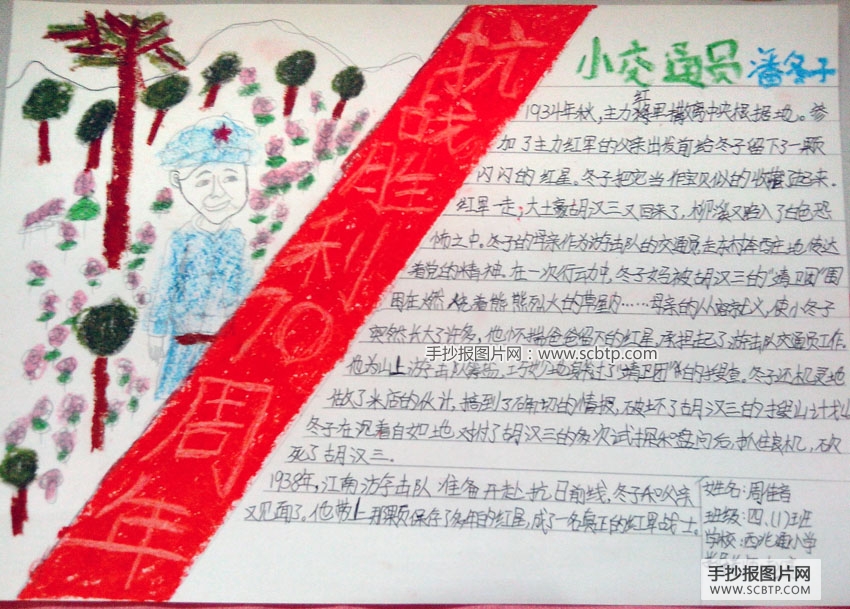 抗战胜利70周年
小交通员 潘冬子
红
1934年秋，主力将军撤离中央根据地。参
加了主力红军的父亲出发前给冬子留下了一颗
闪闪的红星。冬子把它当作宝贝似的收藏了起来。
红军一走，大土豪胡汉三又回来了，柳溪又陷入了白色恐
怖之中。冬子的母亲作为游击队的交通员走东村串西庄地传达
着党的精神。在一次行动中，冬子妈被胡汉三的“靖卫团”围
困在燃烧着熊熊烈火的草屋内……母亲的从容就义，使小冬子
突然长大了许多。他怀揣爸爸留下的红星，承担起了游击队交通员工作。
他为山上游击队 工巧妙地 过了“靖卫团” 的搜查。冬子还机灵地
做了米店的伙计，搞到了确切的情报，破坏了胡汉三的搜山计划
冬子在沉着自如地对付了胡汉三的多次试探和盘问后，抓住良机，砍
死了胡汉三。
1938年，江南游击队准备开赴抗日前线，冬子和父亲
又见面了。他带上那颗保存了多年的红星，成了一名真正的红军战士。
姓名：周佳音
班级：四、(1)班
学校：西兆通小学
手抄报图片网：www.scbtp.com
手抄报图片网
WWW.SCBTP.COM